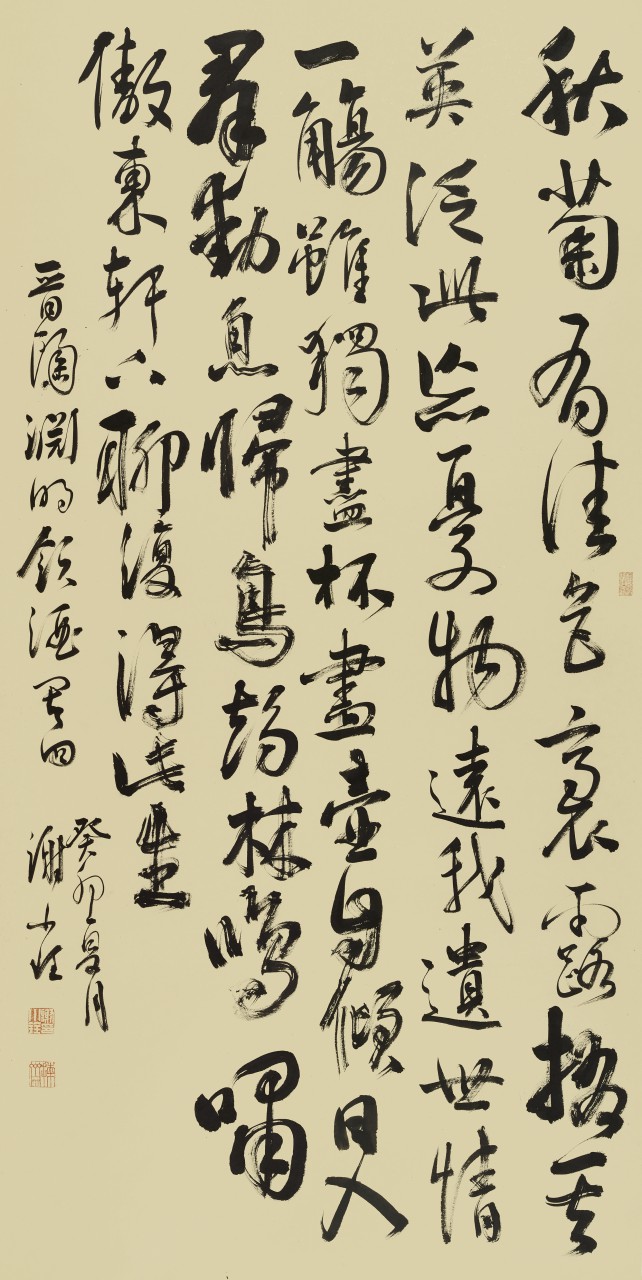 秋菊有佳色裛露掇其
英泛此忘憂物遠我遺世情
一觴雖獨盡杯盡壺自傾日入
羣動息歸鳥趨林鳴嘯
傲東軒下聊復得此生
晉陶淵明飲酒其四
癸卯夏月
謝小